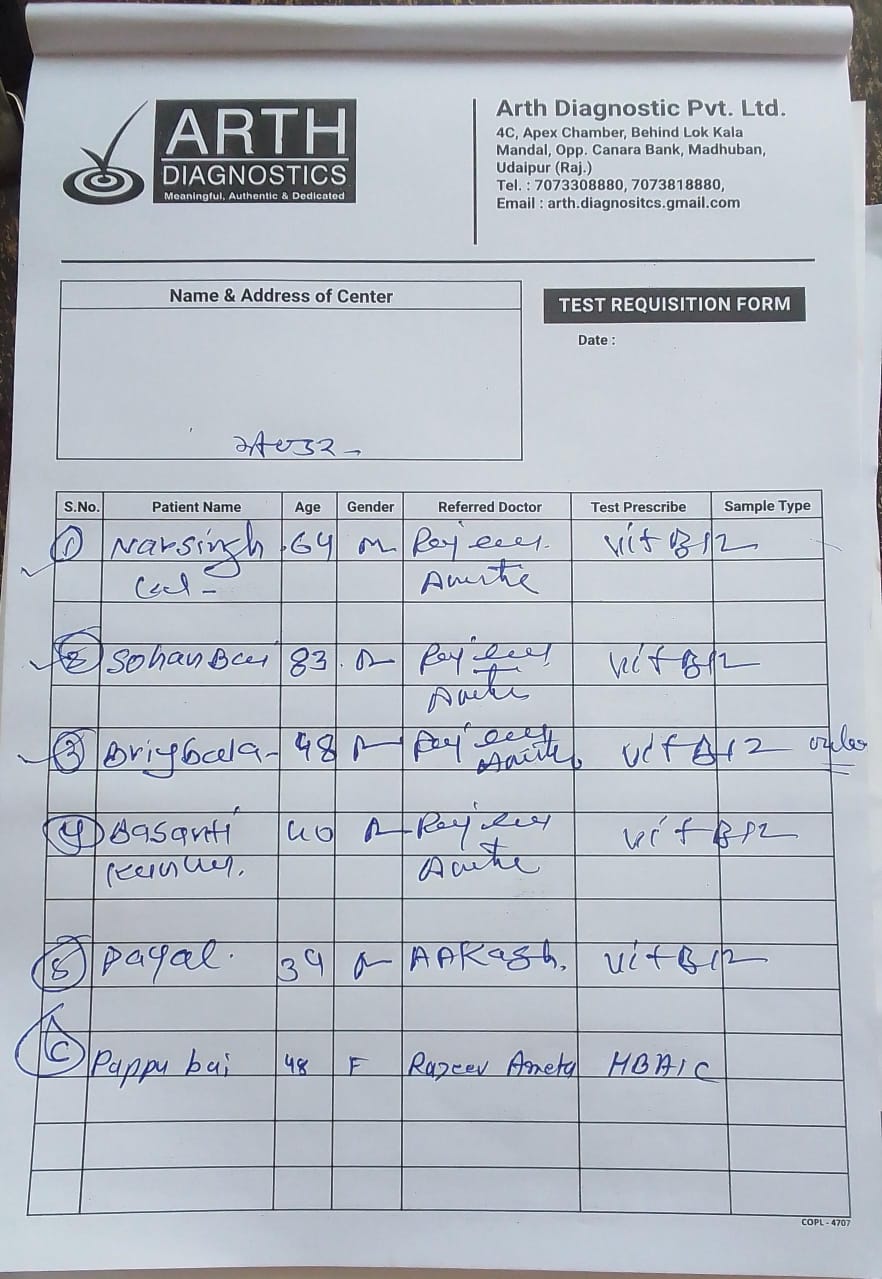 ARTH
DIAGNOSTICS
Meaningful, Authentic & Dedicated
Arth Diagnostic Pvt. Ltd.
4C, Apex Chamber, Behind Lok Kala
Mandal, Opp. Canara Bank, Madhuban,
Udaipur (Raj.)
Tel. : 7073308880, 7073818880,
Email : arth.diagnositcs.gmail.com
Name & Address of Center
TEST REQUISITION FORM
Date :
S.No. Patient Name Age Gender Referred Doctor Test Prescribe Sample Type
1 Narsingh 64 m Vit B12
2 Sohan Bai 83 Vit B12
3 48 Vit B12
4 Basanti 40 Vit B12
5 Payal. 39 AAKash. Vit B12
Pappu bai 48 F Razeev Ameta HBA1C
COPL - 4707